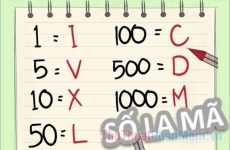 1 = I
5 = V
10 = X
50 = L
100 = C
500 = D
1000 = M
SỐ LA MÃ